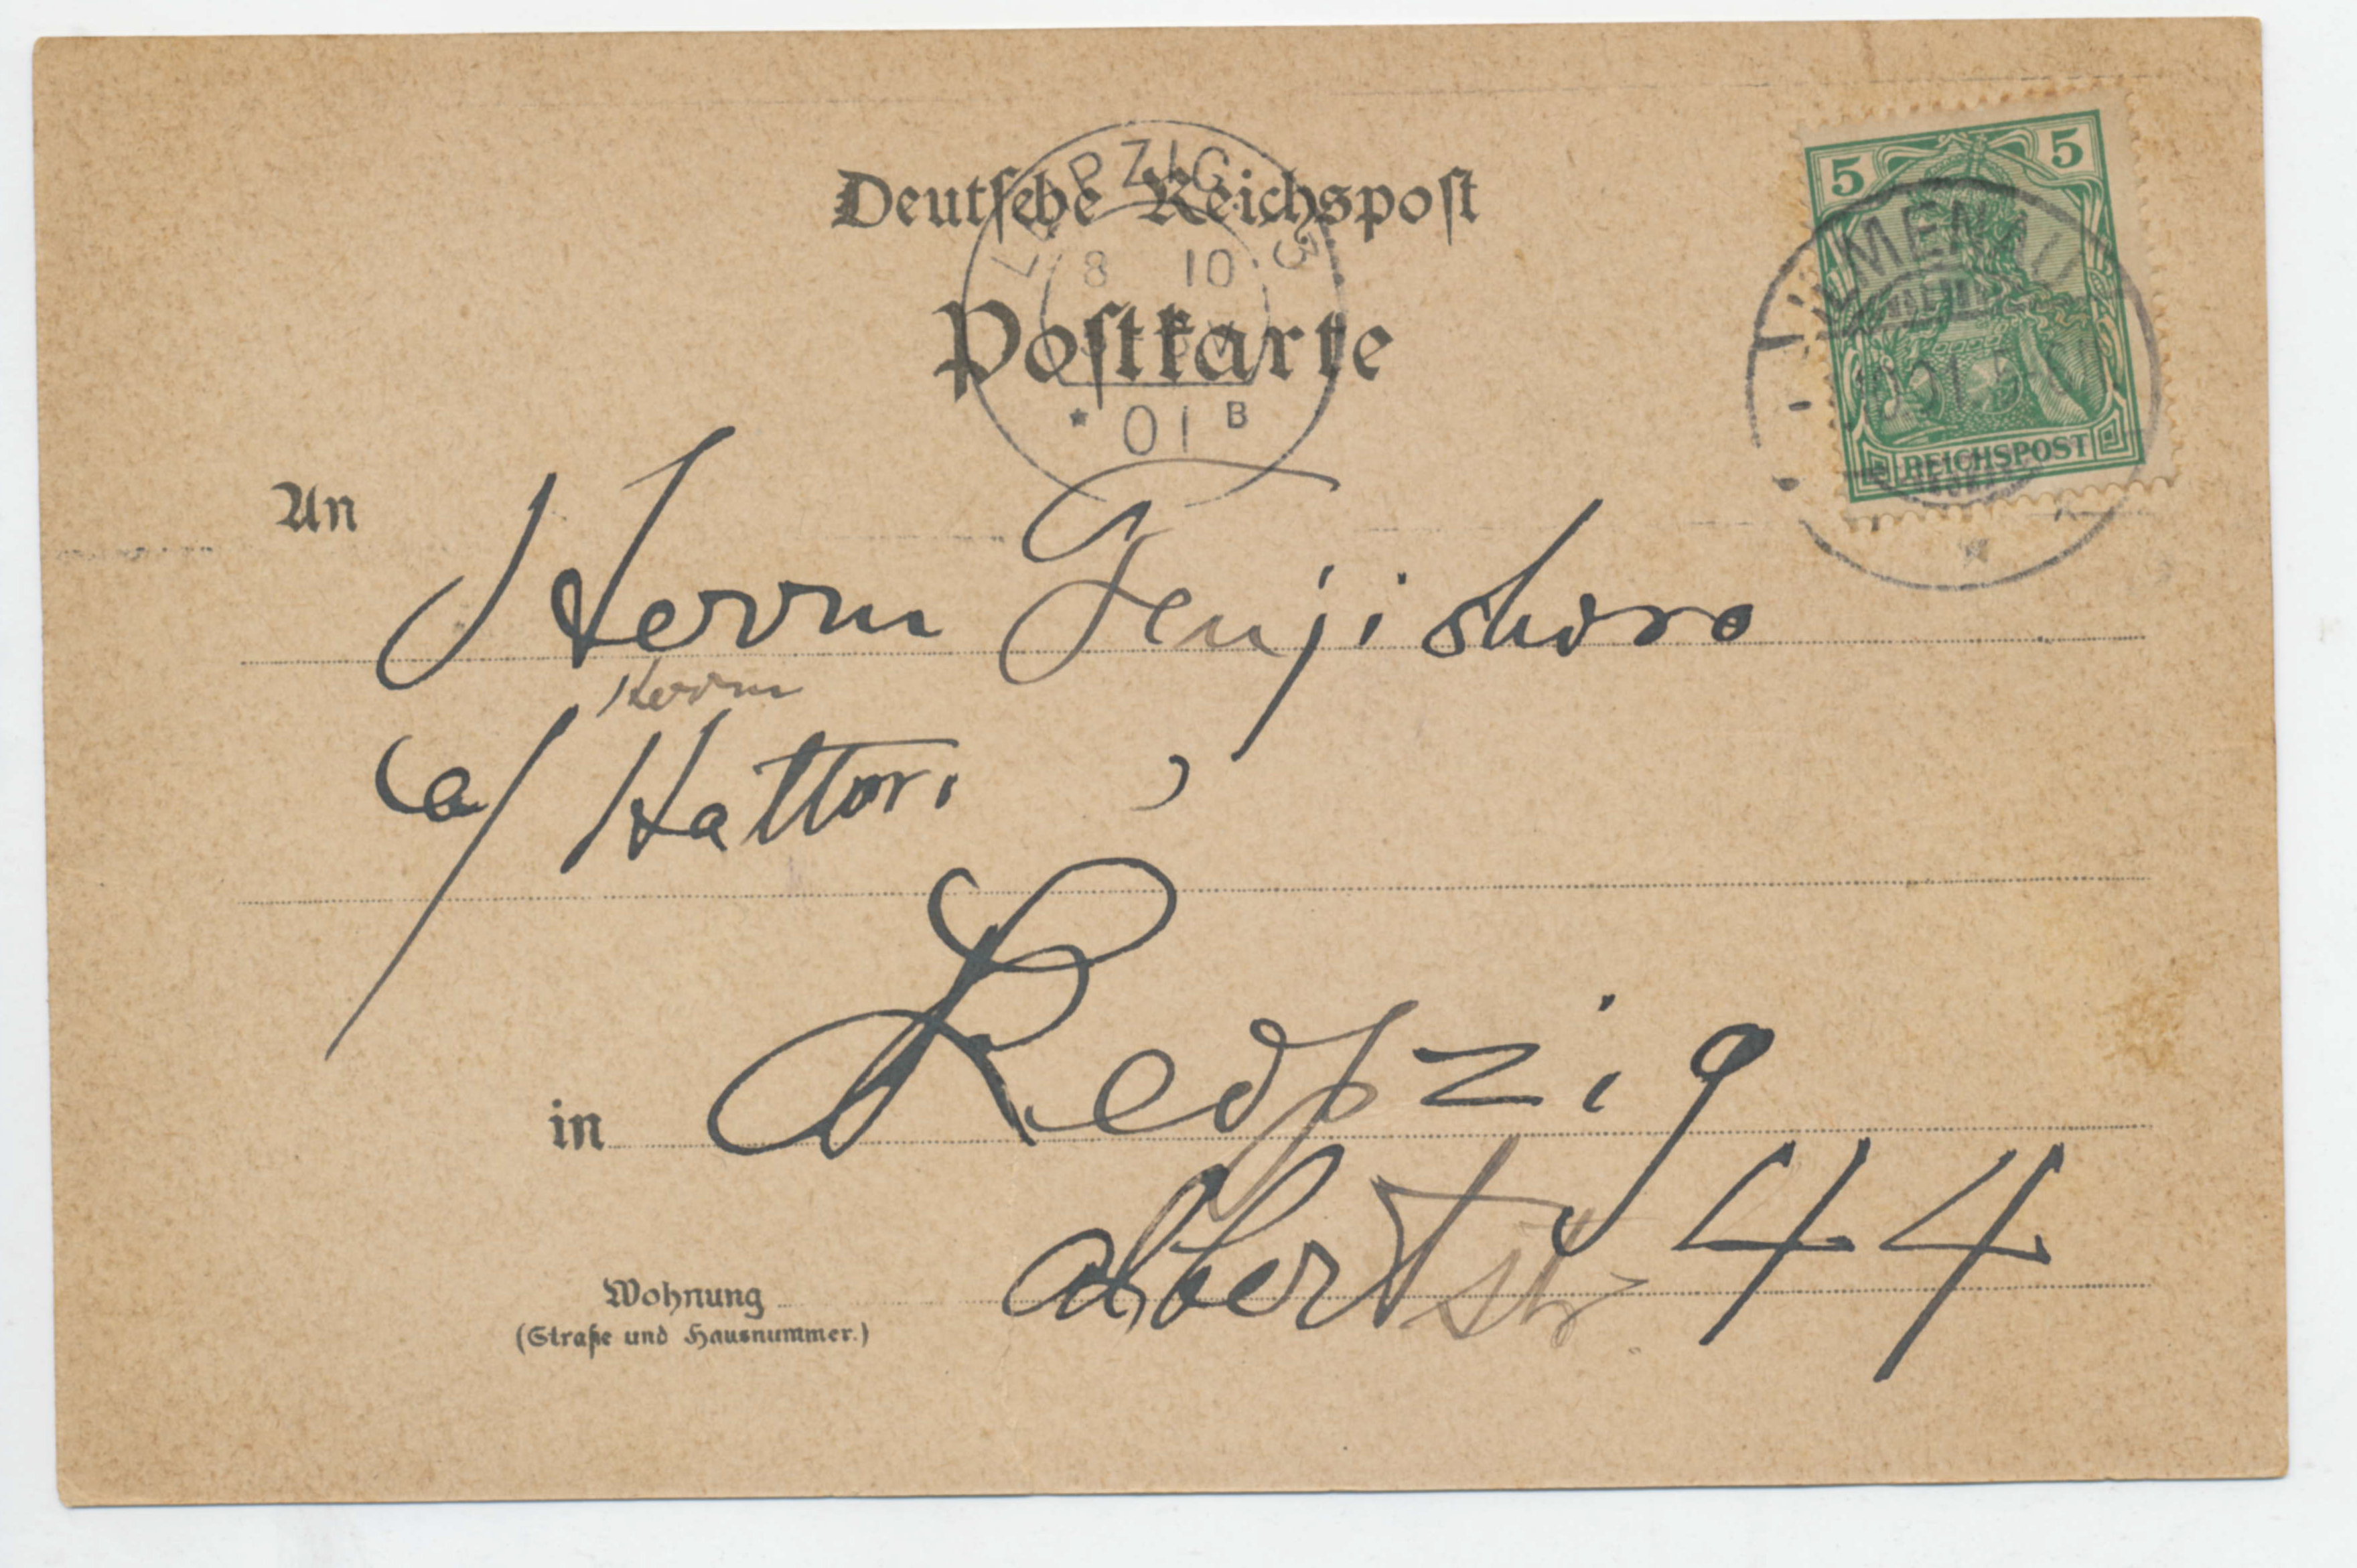 Deutsche Reichspost
Postkarte
LEIPZIG 3
8 10
* 01 B
5 5
ILMENAU
REICHSPOST
An Herrn Fenjishoro
Herrn
c/ Hattori,
in Leipzig
Albertstr 44
Wohnung
(Straße und Hausnummer.)